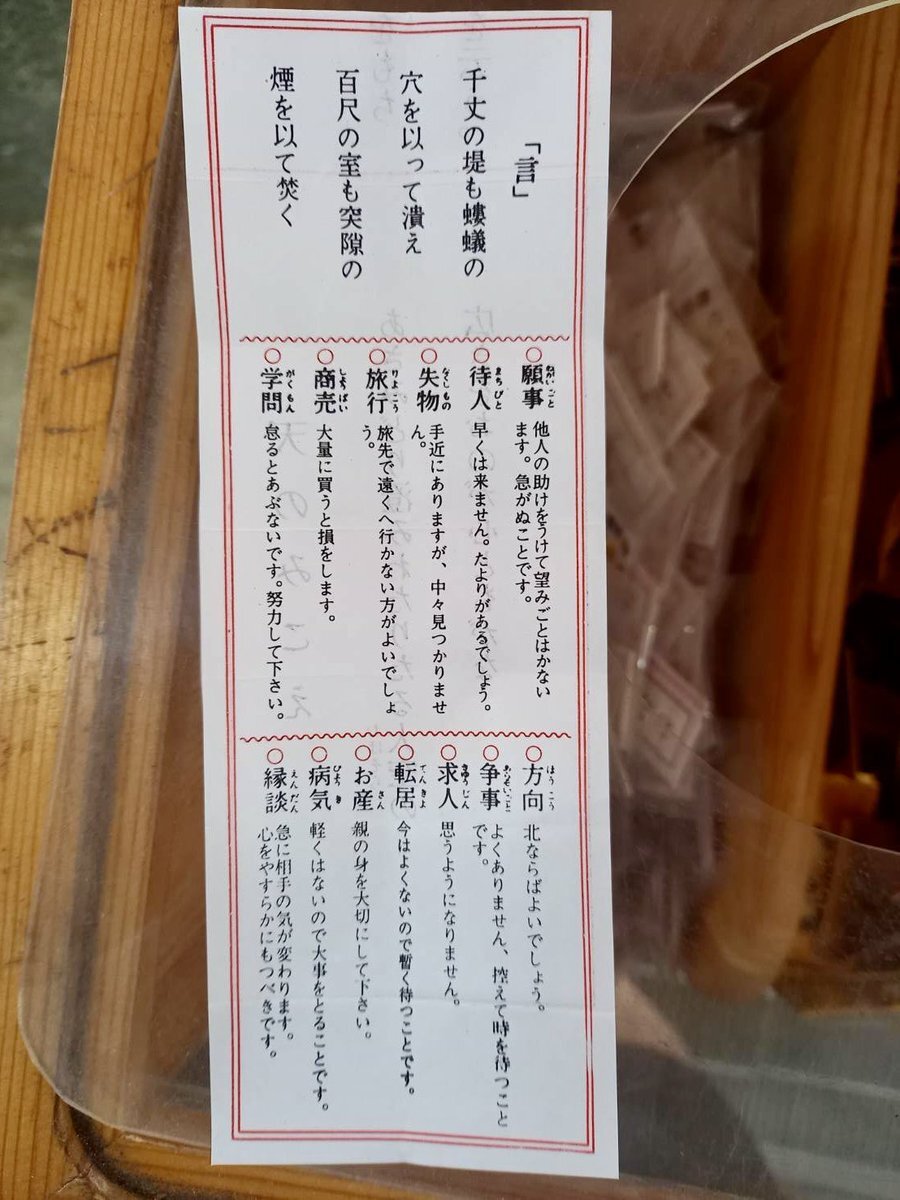 「言」
千丈の堤も螻蟻の
穴を以って潰え
百尺の室も突隙の
煙を以て焚く
○願事 ねがいごと 他人の助けをうけて望みごとはかない
ます。急がぬことです。
○待人 まちびと 早くは来ません。たよりがあるでしょう。
○失物 なくしもの 手近にありますが、中々見つかりませ
ん。
○旅行 りょこう 旅先で遠くへ行かない方がよいでしょ
う。
○商売 しょうばい 大量に買うと損をします。
○学問 がくもん 怠るとあぶないです。努力して下さい。
○方向 ほうこう 北ならばよいでしょう。
○争事 あらそいごと よくありません、控えて時を待つこと
です。
○求人 きゅうじん 思うようになりません。
○転居 てんきょ 今はよくないので暫く待つことです。
○お産 さん 親の身を大切にして下さい。
○病気 びょうき 軽くはないので大事をとることです。
○縁談 えんだん 急に相手の気が変わります。
心をやすらかにもつべきです。